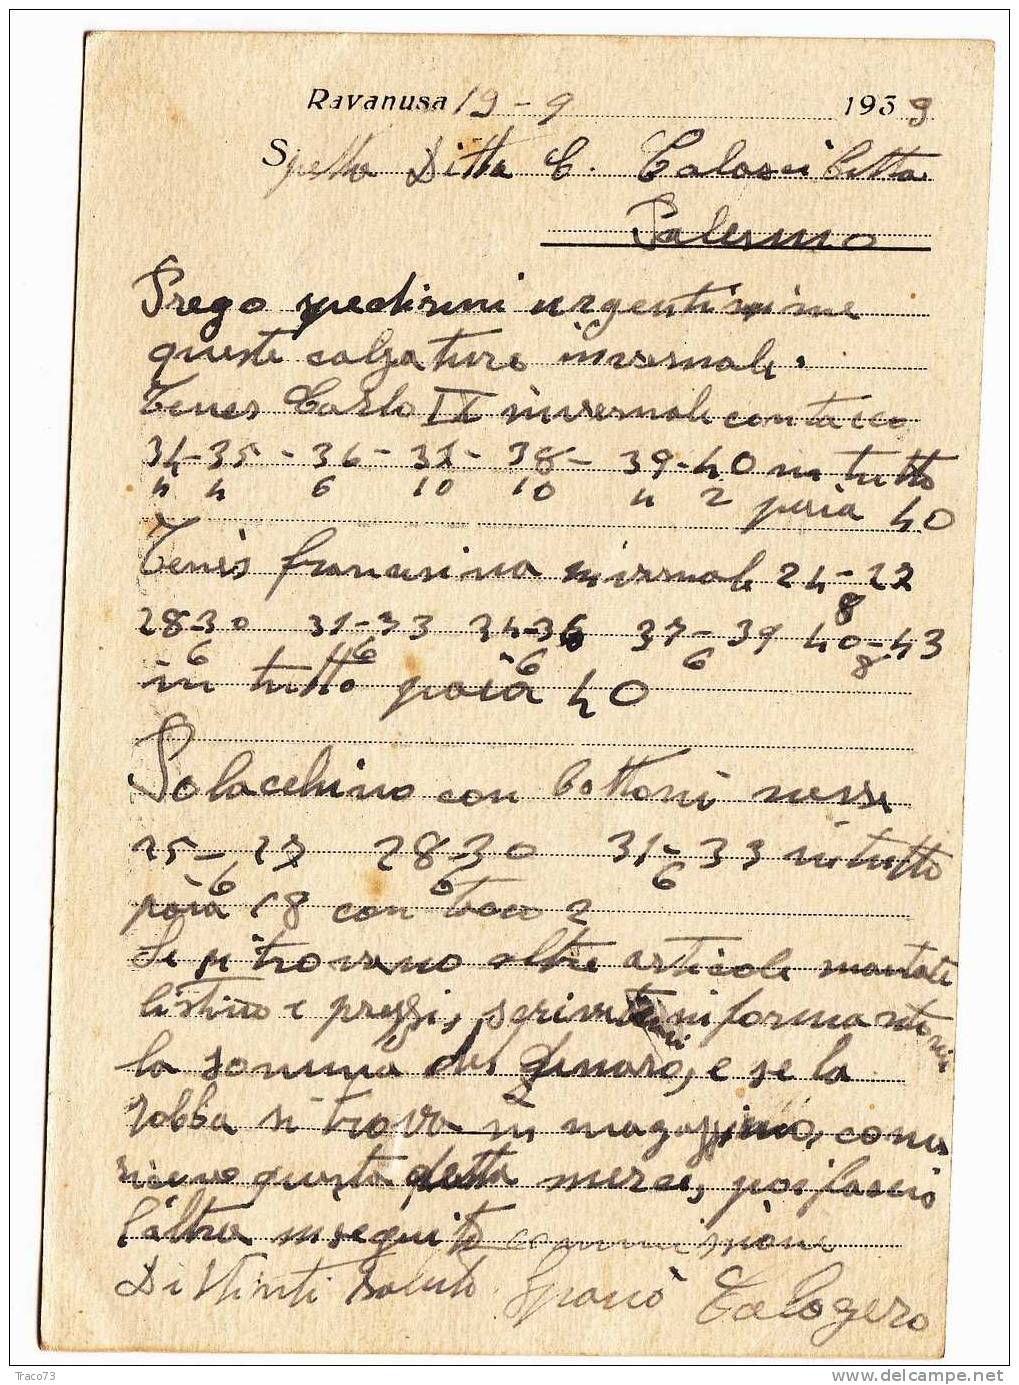 Ravanusa 19-9 1939
Spetta Ditta C. Calascibetta
Palermo
Prego spedirmi urgentissime
queste calzature invernale.
Tenes Carlo IX invernale con tacco
34-35-36-37-38-39-40 in tutto
4 4 6 10 10 4 2 paia 40
Tenis francesina invernale 24-27
8
28-30 31-33 34-36 37-39 40-43
6 6 6 6 8
in tutto paia 40
Polacchino con bottoni nesse
25-27 28-30 31-33 in tutto
6 6 6
paia 18 con tacco 2
Se si trovano altre articole mantate
listino e prezzi, informa
la somma del denaro, e se la
robba si trova in magazzino, come
ricevo questa detta merce, poi faccio
l'altra in seguito commissione
Distinti Saluto Calogero
Traco73
delcampe.net